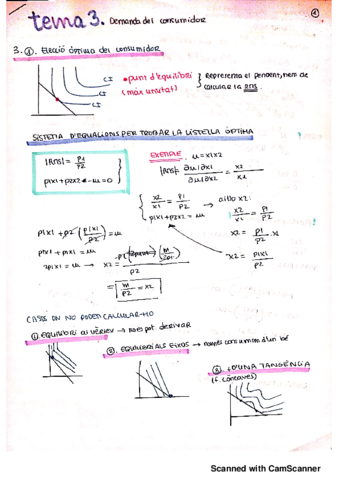 tema 3. Demanda del consumidor
1
3. ①. Elecció òptima del consumidor
CI
CI
CI
• punt d'equilibri
(max utilitat)
Representa el pendent, hem de
calcular la RMS
SISTEMA D'EQUACIONS PER TROBAR LA CISTELLA ÒPTIMA
|RMS| = p1/p2
p1x1 + p2x2 - m = 0
EXEMPLE. u = x1x2
|RMS| = ∂u/∂x1 / ∂u/∂x2 = x2/x1
x2/x1 = p1/p2
p1x1 + p2x2 = m
→ aïllo x2:
x2/x1 = p1/p2
x2 = p1/p2 · x1
x2 = p1x1/p2
p1x1 + p2 (p1x1/p2) = m
p1x1 + p1x1 = m
2p1x1 = m → x2 =
p2
= m/p2 = x2
CASOS ON NO PODEM CALCULAR-HO
① EQUILIBRI AL VÈRTEX → no es pot derivar
② EQUILIBRI ALS EIXOS → només consumim d'un bé
③ +D'UNA TANGÈNCIA
(f. còncaves)
Scanned with CamScanner